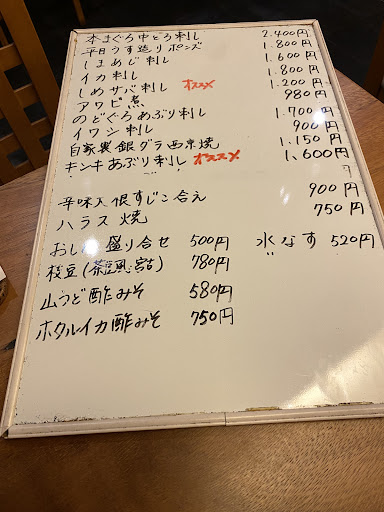 本まぐろ中とろ刺し 2.400円
平目うす造りポンズ 1.800円
しまあじ刺し 1.600円
イカ刺し 1.800円
しめサバ刺し オススメ 1.200円
アワビ煮 980円
のどぐろあぶり刺し 1.700円
イワシ刺し 900円
自家製銀ダラ西京焼 1.150円
キンキあぶり刺し オススメ 1.600円
辛味大根すじこ合え 900円
ハラス焼 750円
盛り合せ 500円 水なす 520円
枝豆(茶豆風・宮古) 780円
山うど酢みそ 580円
ホタルイカ酢みそ 750円